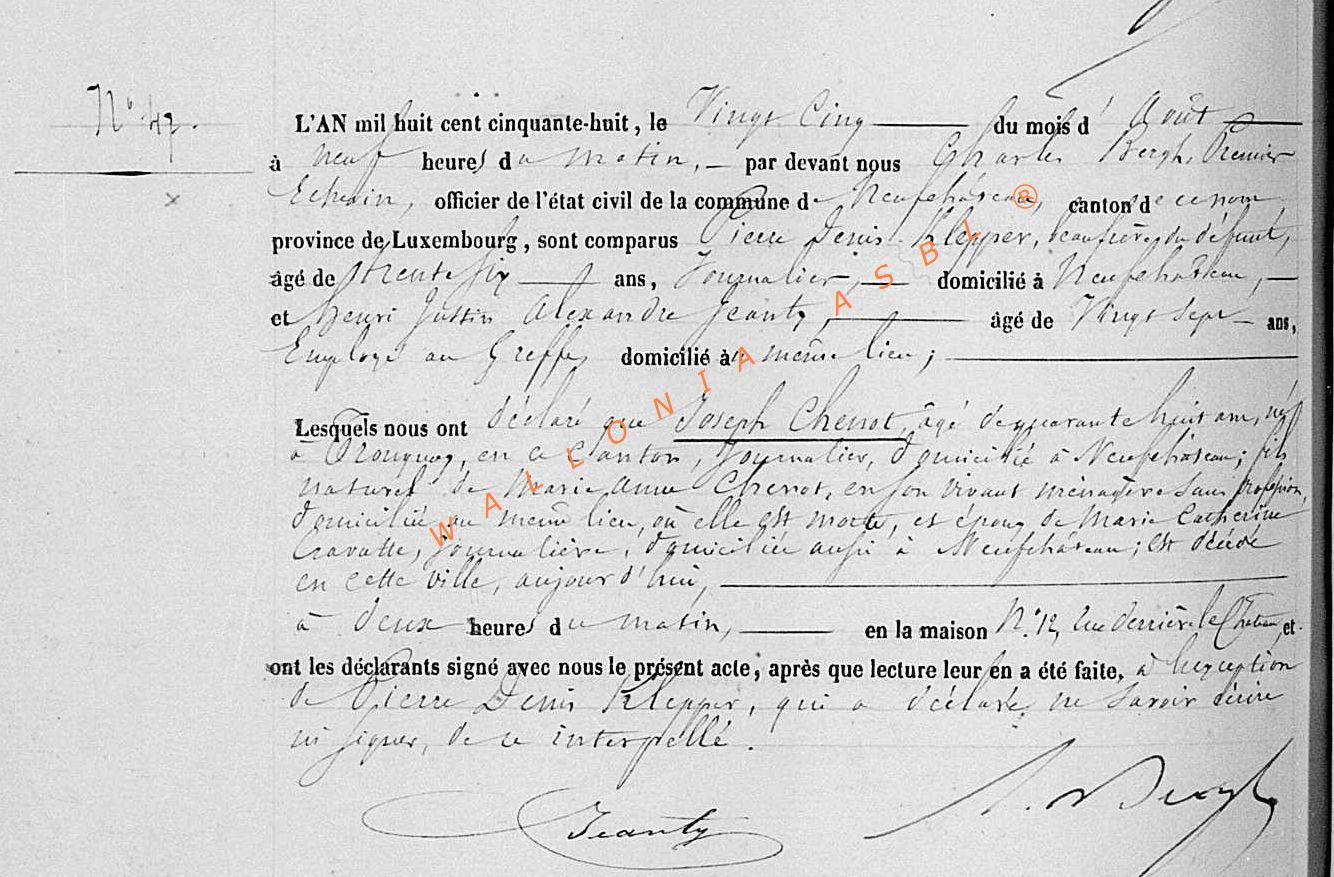 N° 47.
L'AN mil huit cent cinquante-huit, le Vingt Cinq du mois d'Août
à neuf heures du matin, par devant nous Charles Bergh, Premier
Echevin, officier de l'état civil de la commune de Neufchâteau, canton de ce nom
province de Luxembourg, sont comparus Pierre Denis Klepper, beaufrère du défunt,
âgé de trente six ans, Journalier, domicilié à Neufchâteau,
et Henri Justin Alexandre Jeanty, âgé de Vingt Sept ans,
Employé au Greffe, domicilié au même lieu;
Lesquels nous ont déclaré que Joseph Chenot, âgé de quarante huit ans, né
à en ce Canton, Journalier, domicilié à Neufchâteau; fils
naturel de Marie Anne Chenot, en son vivant ménagère sans profession,
domiciliée au même lieu, où elle est morte, et époux de Marie Catherine
Cravatte, journalière, domiciliée aussi à Neufchâteau; est décédé
en cette ville, aujourd'hui,
à deux heures du matin, en la maison N.° 12, rue derrière le Château et
ont les déclarants signé avec nous le présent acte, après que lecture leur en a été faite, à l'exception
de Pierre Denis Klepper, qui a déclaré ne savoir écrire
ni signer, de ce interpellé.
Jeanty
Bergh
WALLONIA ASBL ®